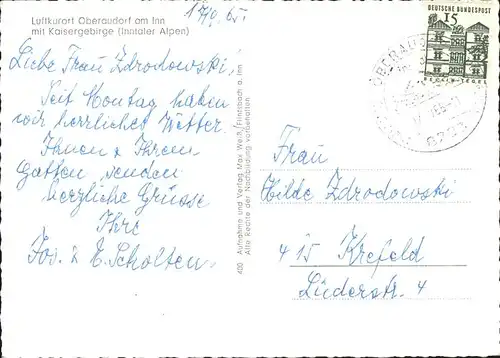 17/9. 65.
Luftkurort Oberaudorf am Inn
mit Kaisergebirge (Inntaler Alpen)
Liebe Frau Zdrodowski!
Seit Montag haben
wir herrliches Wetter.
Ihnen u. Ihrem
Gatten senden
herzliche Grüsse
Ihre
Jos. u. E. Scholten.
400 Aufnahme und Verlag Max Weiß, Flintsbach a. Inn
Alle Rechte der Nachbildung vorbehalten
DEUTSCHE BUNDESPOST
15
BERLIN-TEGEL
OBERAUDORF
8203
Frau
Hilde Zdrodowski
415 Krefeld
Lüderstr. 4